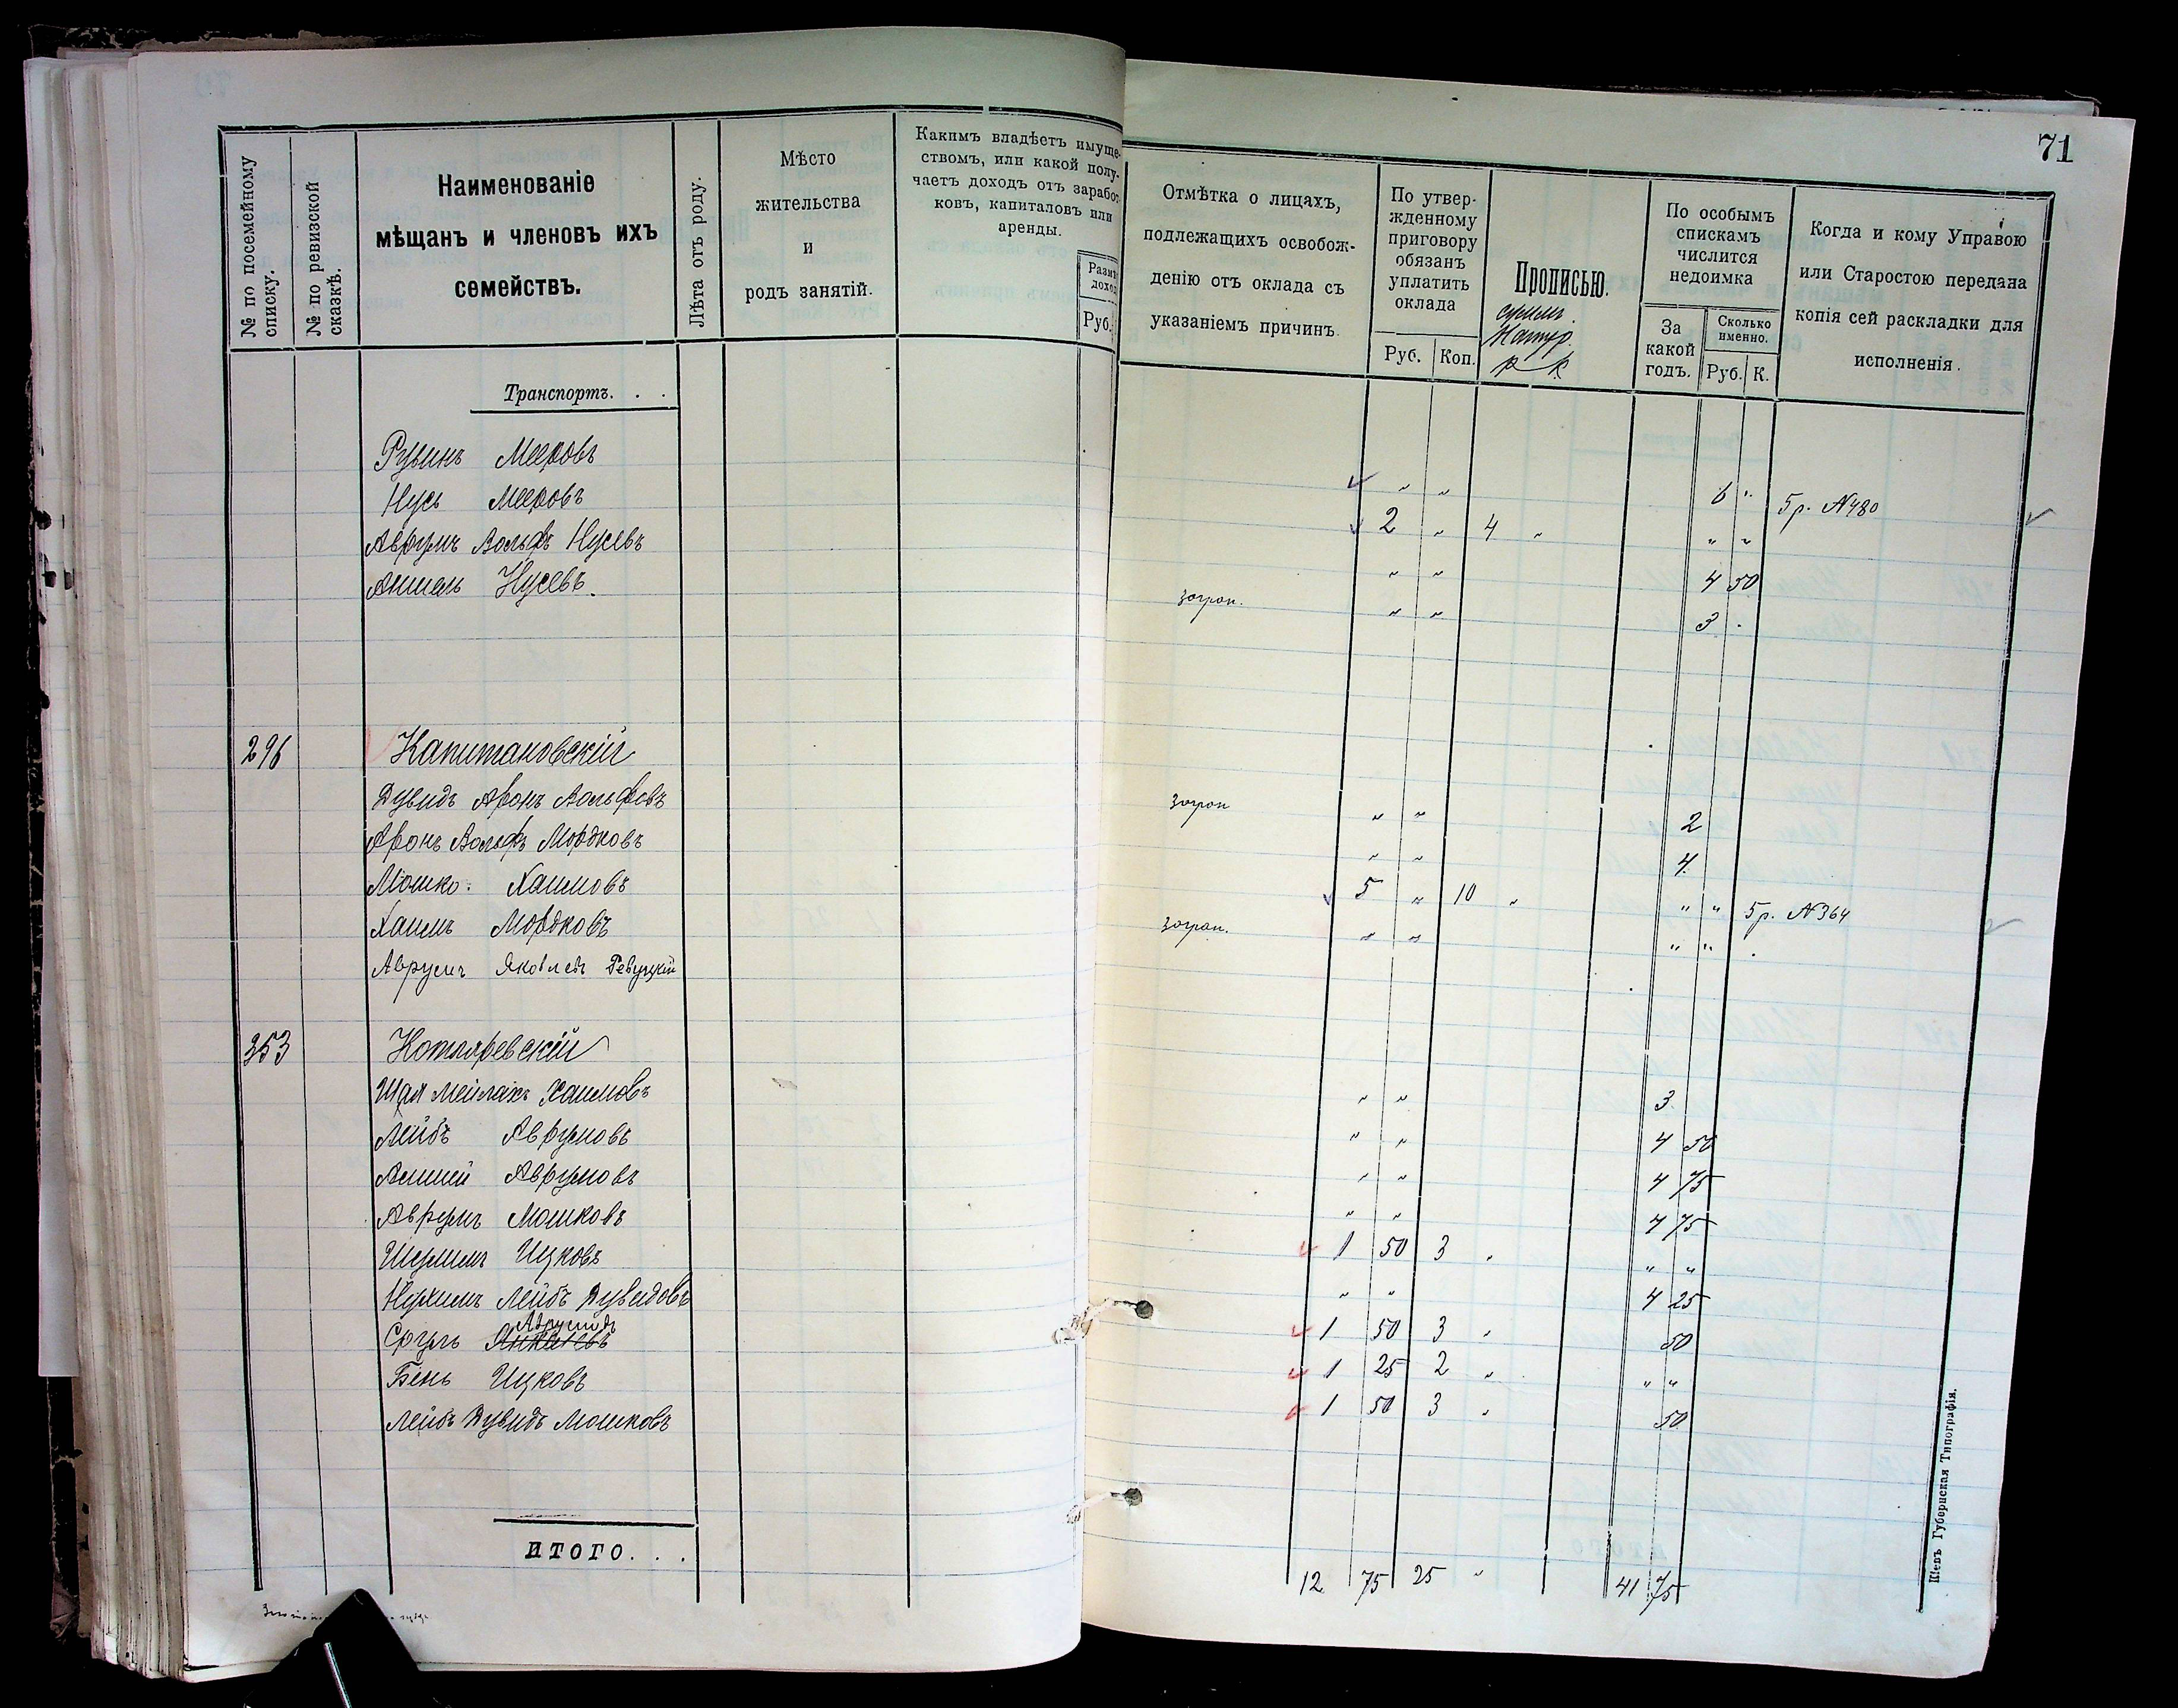 71
№ по посемейному списку.
№ по ревизской сказкѣ.
Наименованіе
мѣщанъ и членовъ ихъ
семействъ.
Лѣта отъ роду.
Мѣсто
жительства
и
родъ занятій.
Какимъ владѣетъ имуще-
ствомъ, или какой полу-
чаетъ доходъ отъ заработ
ковъ, капиталовъ или
аренды.
Руб.
Отмѣтка о лицахъ,
подлежащихъ освобож-
денію отъ оклада съ
указаніемъ причинъ.
По утвер-
жденному
приговору
обязанъ
уплатить
оклада
Руб. Коп.
Прописью.
По особымъ
спискамъ
числится
недоимка
За
какой
годъ.
Сколько
именно.
Руб. К.
Когда и кому Управою
или Старостою передана
копія сей раскладки для
исполненія.
Транспортъ. . .
Рувинъ Мееровъ " " 6 " 5 р. №480
Нусь Мееровъ 2 " 4 " " "
Аврумъ Вольфъ Нусевъ " " 4 50
Аншель Нусевъ. загран. " " 3 .
296 Капитановскій
Дувидъ Аронъ Вольфовъ загран " " 2
Аронъ Вольфъ Мордковъ " " 4
Мошко Хаимовъ 5 " 10 " " " 5 р. №364
Хаимъ Мордковъ загран. " " " "
Аврумъ Яковлевъ Ревуцкій
353 Котляревскій
Шая Мейлахъ Хаимовъ " " 3
Лейбъ Аврумовъ " " 4 50
Авруmовъ " " 4 75
Аврумъ Мошковъ " " 4 75
Шулимъ Ицковъ 1 50 3 " " "
Нухимъ Лейбъ Дувидовъ " " 4 25
Сруль Аврумовъ 1 50 3 " 50
Бень Ицковъ 1 25 2 " " "
Лейбъ Дувидъ Мошковъ 1 50 3 " 50
ИТОГО. . .
12 75 25 " 41 75
Кіевъ Губернская Типографія.